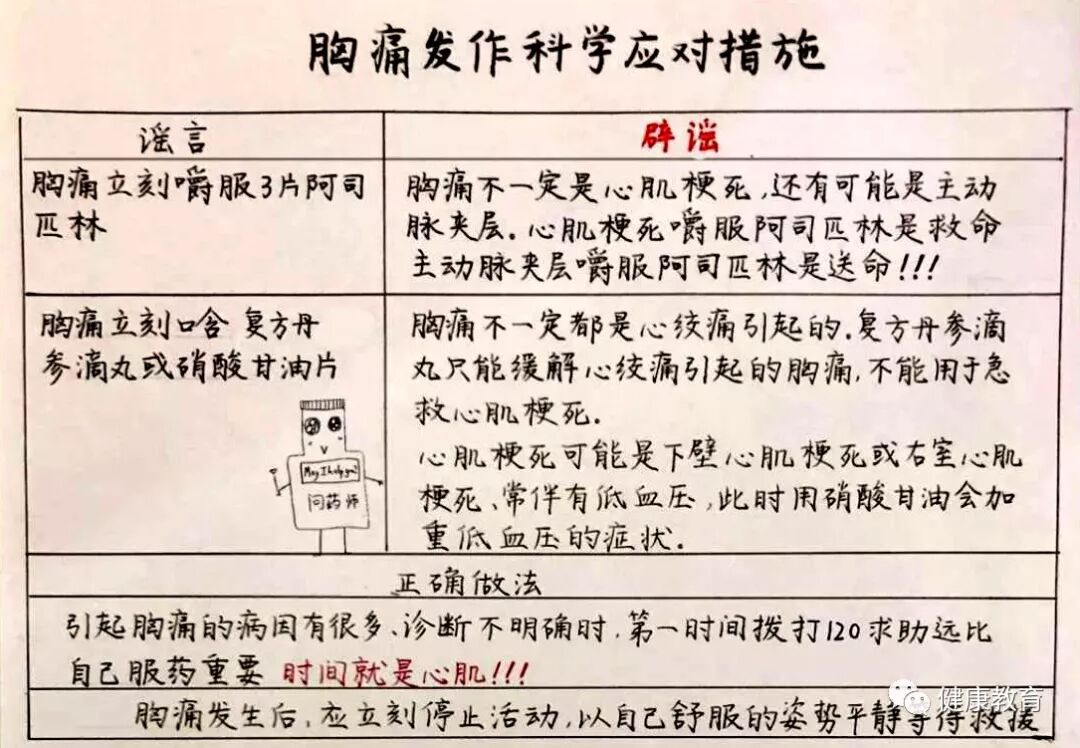 胸痛发作科学应对措施
谣言
辟谣
胸痛立刻嚼服3片阿司
匹林
胸痛不一定是心肌梗死,还有可能是主动
脉夹层.心肌梗死嚼服阿司匹林是救命
主动脉夹层嚼服阿司匹林是送命!!!
胸痛立刻口含复方丹
参滴丸或硝酸甘油片
May I help you?
问药师
胸痛不一定都是心绞痛引起的.复方丹参滴
丸只能缓解心绞痛引起的胸痛,不能用于急
救心肌梗死.
心肌梗死可能是下壁心肌梗死或右室心肌
梗死、常伴有低血压,此时用硝酸甘油会加
重低血压的症状.
正确做法
引起胸痛的病因有很多、诊断不明确时,第一时间拨打120求助远比
自己服药重要 时间就是心肌!!!
胸痛发生后,应立刻停止活动,以自己舒服的姿势平静等待救援
健康教育